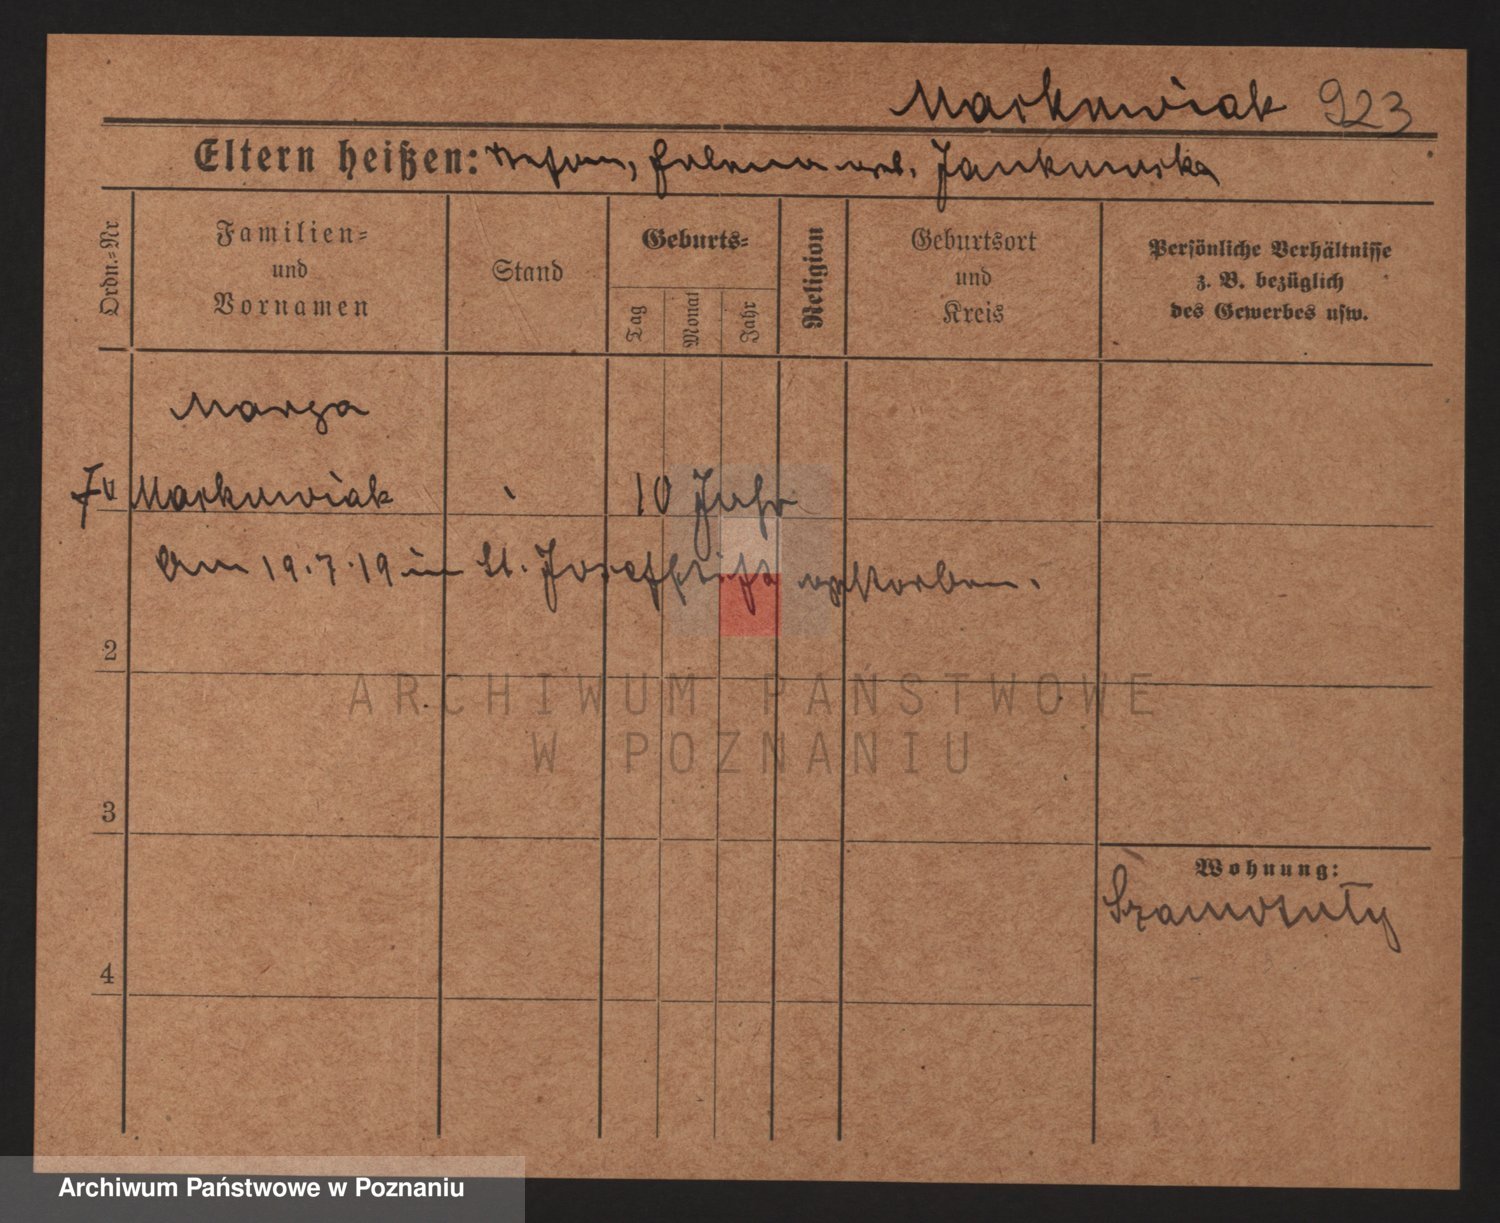 Markowiak 923
Eltern heißen: Stefan, Helena geb. Jankowska
Ordn.-Nr
Familien-
und
Vornamen
Stand
Geburts-
Tag
Monat
Jahr
Religion
Geburtsort
und
Kreis
Persönliche Verhältnisse
z. B. bezüglich
des Gewerbes usw.
Marya
Markowiak 10 Jahr
Am 19.7.19 im St. Josefstift gestorben.
2
3
4
Wohnung:
Szamotuły
ARCHIWUM PAŃSTWOWE
W POZNANIU
Archiwum Państwowe w Poznaniu